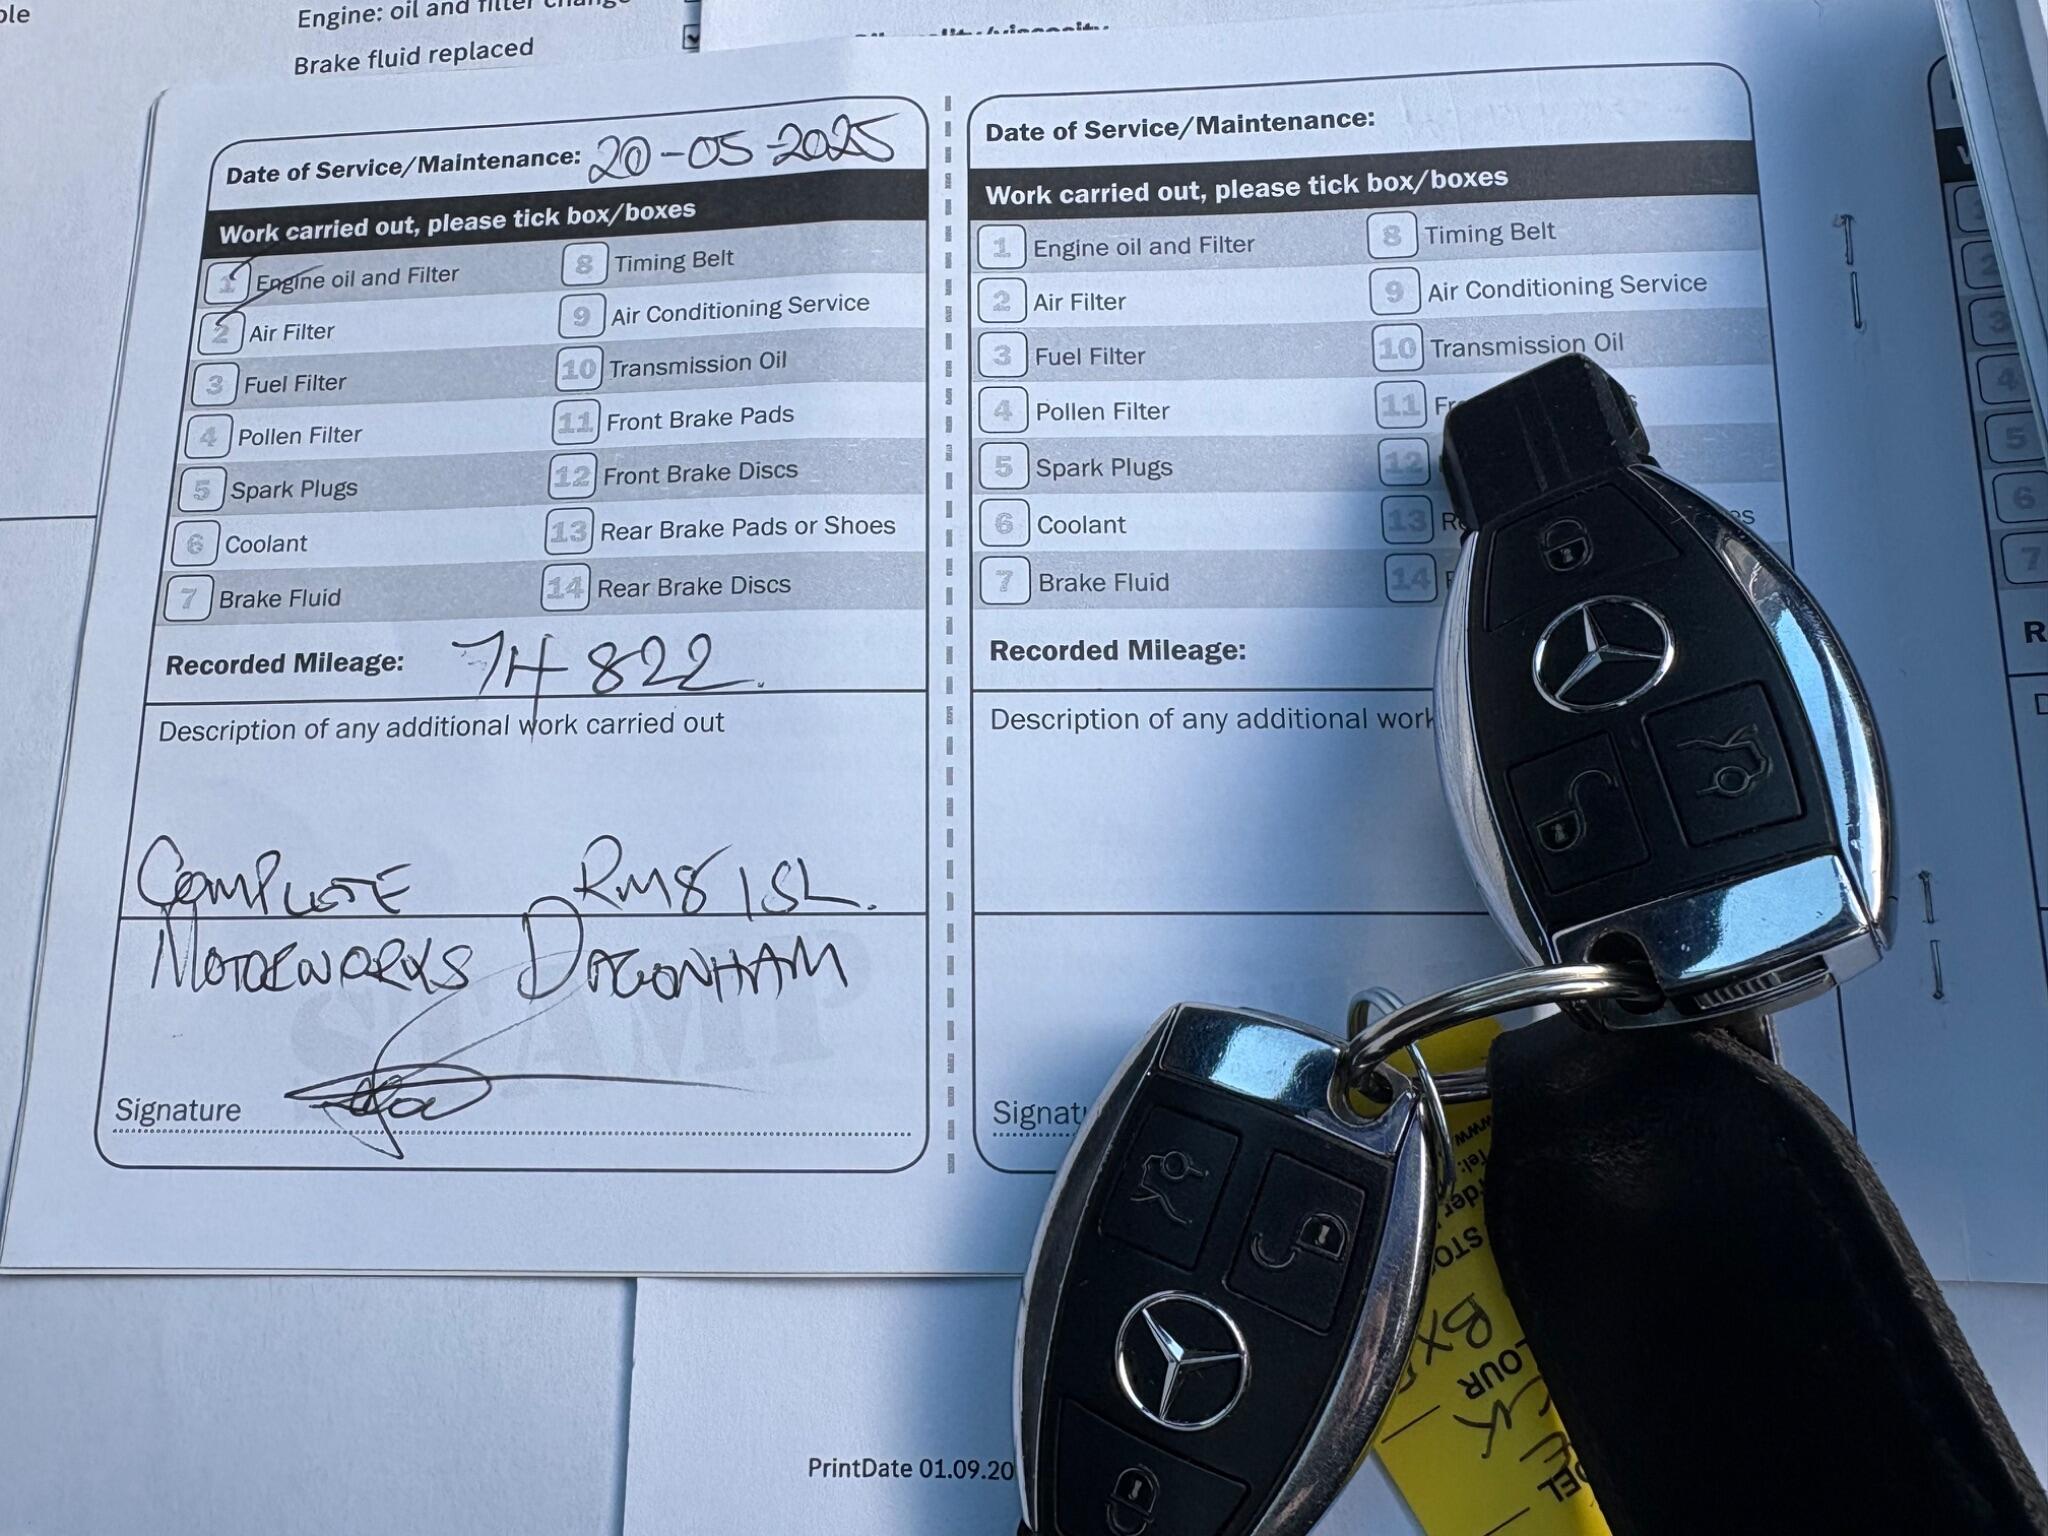 Engine: oil and filter change
Brake fluid replaced
Date of Service/Maintenance: 20-05-2025
Work carried out, please tick box/boxes
1 Engine oil and Filter
8 Timing Belt
2 Air Filter
9 Air Conditioning Service
3 Fuel Filter
10 Transmission Oil
4 Pollen Filter
11 Front Brake Pads
5 Spark Plugs
12 Front Brake Discs
6 Coolant
13 Rear Brake Pads or Shoes
7 Brake Fluid
14 Rear Brake Discs
Recorded Mileage: 74822.
Description of any additional work carried out
COMPLETE RM8 1SL.
MOTORWORKS DAGONHAM
Signature
Date of Service/Maintenance:
Work carried out, please tick box/boxes
1 Engine oil and Filter
8 Timing Belt
2 Air Filter
9 Air Conditioning Service
3 Fuel Filter
10 Transmission Oil
4 Pollen Filter
11 Fr
5 Spark Plugs
12
6 Coolant
13
7 Brake Fluid
14
Recorded Mileage:
Description of any additional work
Signat
PrintDate 01.09.20